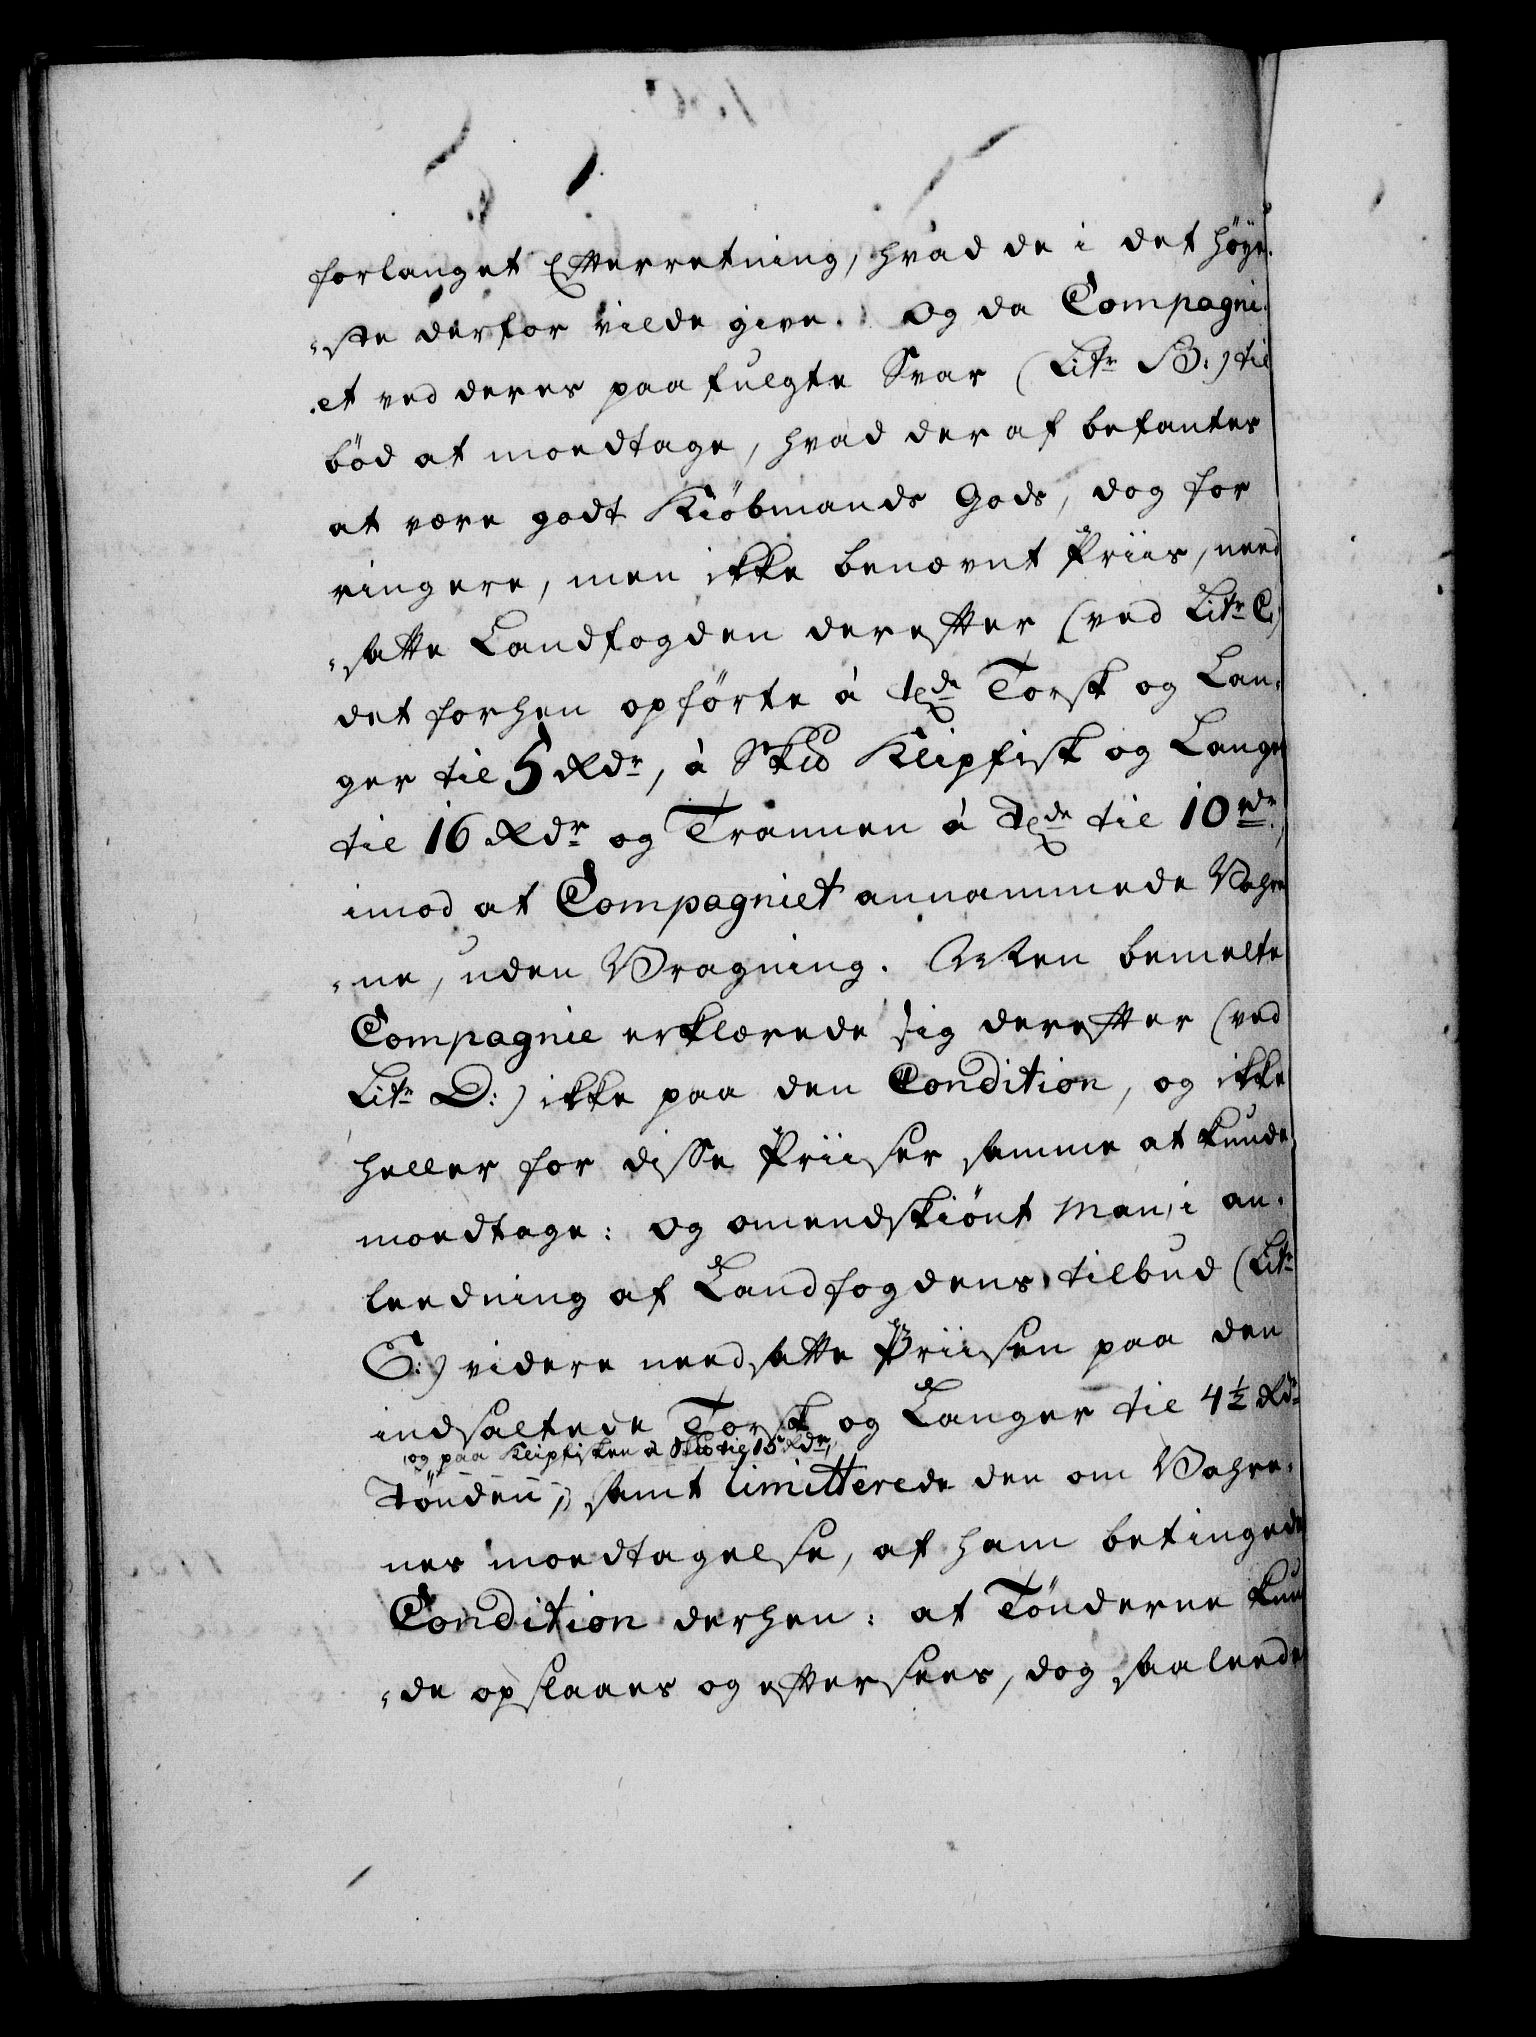 forlanget Efterretning, hvad de i det höye-
-ste derfor vilde give. Og da Compagni-
-et ved deres paafulgte Svar (Litr B:) til
bød at modtage, hvad der af befantes
at være godt Kiöbmands Gods, dog for
ringere, men ikke benævnt Priis, need
-satte Landfogden derefter (ved Litr C:)
det forhen opførte à Tde Torsk og Lan-
ger til 5 Rdr, à Skd Klipfisk og Langer
til 16 Rdr og Trannen à Tde til 10 rdr,
imod at Compagniet annammede Vahre
-ne, uden Vragning. Men bemelte
Compagnie erklærede sig derefter (ved
Litr D:) ikke paa den Condition, og ikke
heller for disse Priiser samme at kunde
modtage: og omendskiönt man, i an-
leedning af Landfogdens tilbud (Litr
E:) videre needsatte Priisen paa den
indsaltede Torsk og Langer til 4½ Rdr
og paa Klipfisken à Skd til 15 Rdr,
Tönden, samt limitterede den om Vahre-
nes modtagelse, af ham betingede
Condition derhen: at Tönderne kun
-de opslaaes og eftersees, dog saaleedes